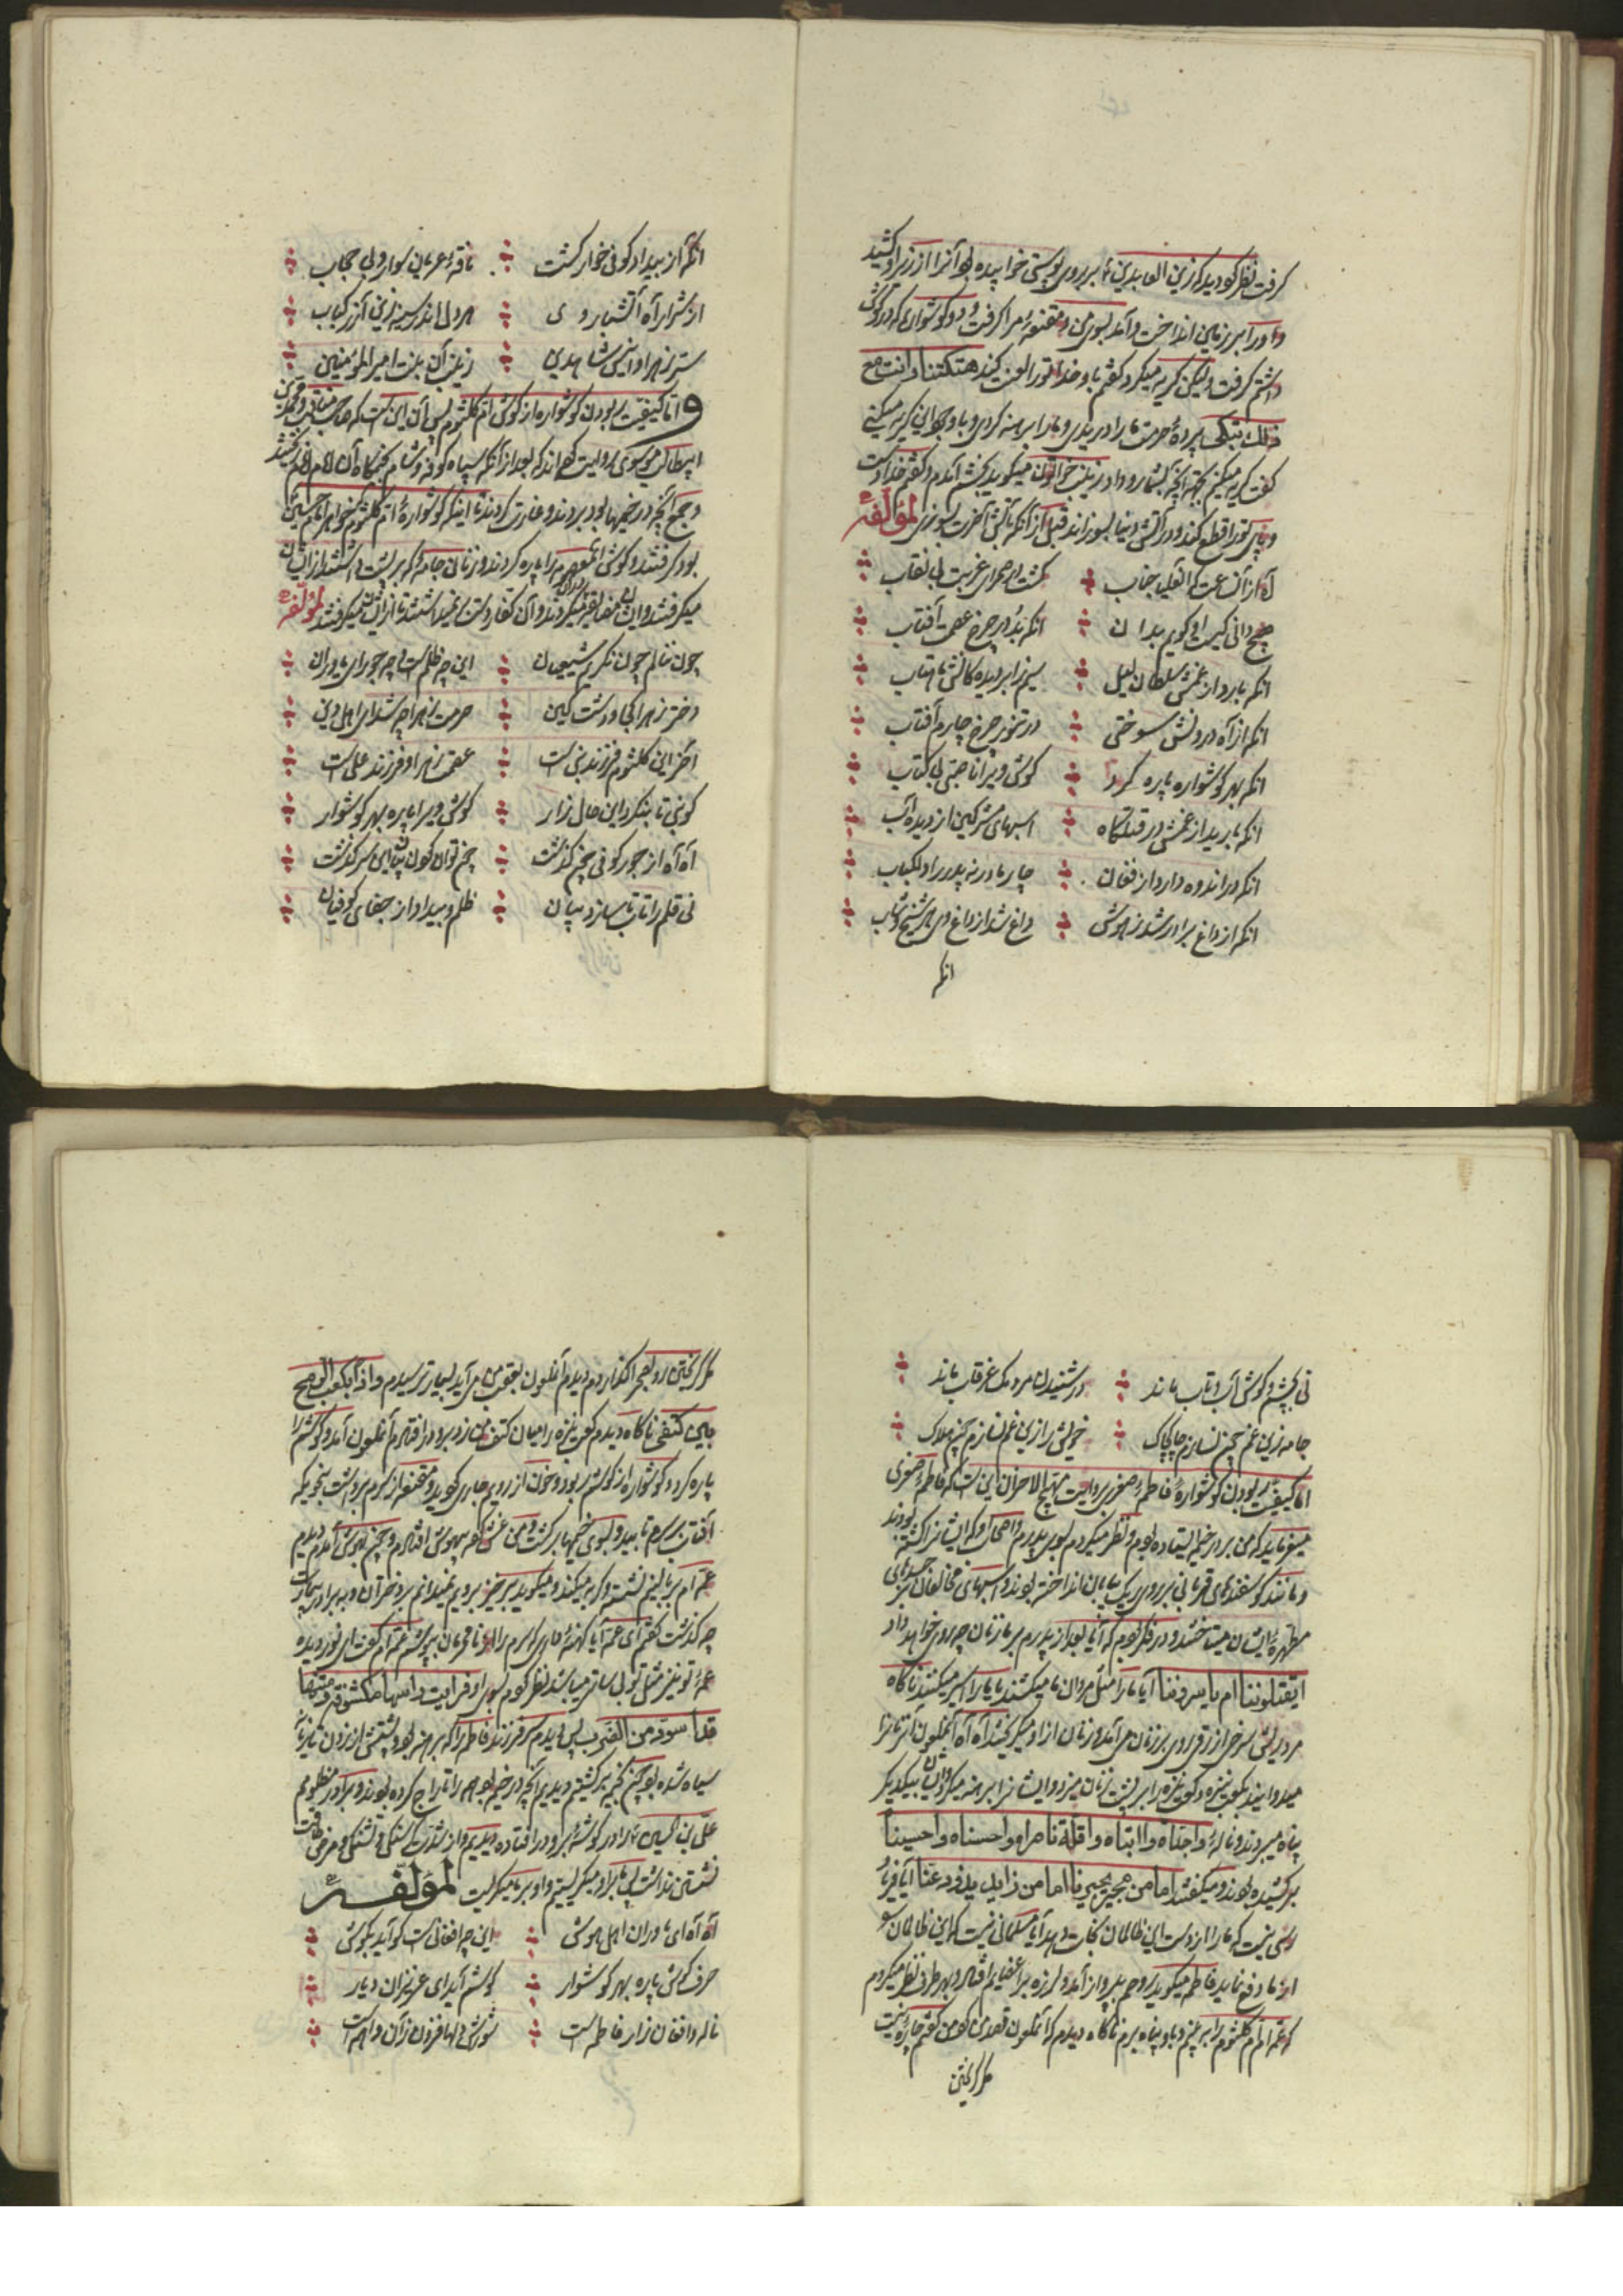 گرفت نظر کرد دید که زین العابدین ع بر روی پوستی خوابیده بود آنرا از زیر او کشید
و او را بر زمین انداخت و آمد بسوی من و مقنعهٔ مرا گرفت و دو گوشواری که در گوش
داشتم گرفت ولیکن گریه میکرد گفتم باو خدا تو را لعنت کند هتکتنا و انت مع
ذلک تبکی پردهٔ حرمت ما را دریدی و ما را برهنه کردی و با وجود این گریه میکنی
گفت گریه میکنم بجهة آنچه بشما رو داد زینب خواتون میگوید بخشم آمدم و گفتم خدا دست
و پای تو را قطع کند و در آتش دنیا بسوزاند قبل از آنکه بآتش آخرت بسوزی لمؤلفه
آه از آن عصمت جناب گشت در صحرای غربت بی نقاب
هیچ دانی کیست او گویم بدان انکه بد در چرخ عصمت آفتاب
انکه بارد از غمش سلطان لیل
انکه از آه درونش سوختی در تموز چرخ چارم آفتاب
انکه بهر گوشواره پاره کرد گوش ویرا ناجبی بی کتاب
انکه بارید از غمش در قتلگاه اسبهای مشرکین از دیده آب
انکه در اندوه دارد از فغان چار مادر نه پدر را دلکباب
انکه از داغ برادر شد ز هوش داغ شد از داغ وی هر شیخ و شاب
انکه
انکه از بیداد کوفی خوار گشت ناقهٔ عریان سوار و بی حجاب
از شرار آه آتشبار وی هر دلی اندر سینه زین آذر کباب
ستر زهرا و انیس شاهدین زینب آن بنت امیر المؤمنین
و اما کیفیت ربودن گوشواره از گوش ام کلثوم پس آن این است که صاحب مناقب و محمد بن
ابیطالب موسوی روایت کرده اند که بعد از آنکه سپاه کوفه و شام بخیمگاه آن امام
و جمیع آنچه در خیمها بود بردند و غارت کردند تا اینکه گوشوارهٔ ام کلثوم خواهر امام حسین ع
بود گرفتند و گوش آن معصومه را پاره کردند و زنان جامهٔ که بر پشت داشتند از ایشان
میگرفتند و ایشان مضایقه میکردند و آن کفار دست بر نمیداشتند تا از ایشان میگرفتند لمؤلفه
چون ننالم چون نگریم شیعیان این چه ظلم است و چه جور ای یاوران
دختر زهرا کجا و دشت کین حرمت زهرا چه شد ای اهل دین
آخر این کلثوم فرزند نبی است عصمت زهرا و فرزند علی است
کو نبی تا بنگرد این حال زار گوش ویرا پاره بهر گوشوار
آه آه از جور کوفی چون گذشت چون توان گفتن این سرگذشت
نی قلم را تاب تا سازد بیان ظلم و بیداد از جفای کوفیان
نی بچشم و گوش آب و تاب ماند در شنیدن مردمک غرقاب ماند
جامه زین غم چون نسازم چاک چاک خویش را زین غم نسازم چون هلاک
اما کیفیت ربودن گوشوارهٔ فاطمهٔ صغری بروایت مهیج الاحزان این است که فاطمهٔ صغری
میفرماید که من بر در خیمه ایستاده بودم و نظر میکردم بسوی پدرم و اصحاب او که ایشان را کشته بودند
و مانند گوسفندهای قربانی بر روی ریگ بیابان انداخته بودند و اسبهای مخالفان بر جسدهای
مطهرهٔ ایشان میتاختند و در فکر بودم که آیا بعد از پدرم بر ما زنان چه روی خواهد داد
ایقتلوننا ام یاسروننا آیا ما را مثل مردان ما میکشند یا ما را اسیر میکنند ناگاه
مرد ریش سرخ ازرق روی بر زنان می آمد و زنان از او میگریختند آه آه آنملعون آنزنانرا
میدوانید بکعب نیزه و کعب نیزه را بر پشت زنان میزد و ایشانرا برهنه میکرد و ایشان بیکدیگر
پناه میبردند و نالهٔ واجداه وا ابتاه واقلة ناصراه واحسناه واحسینا
بر کشیده بودند و میگفتند اما من مجیر یجیرنا اما من ذاید یذود عنا آیا فریاد
رسی نیست که ما را از دست این ظالمان نجات دهد آیا مسلمانی نیست که این ظالمان را
از ما دفع نماید فاطمه میگوید روحم بپرواز آمد و لرزه بر اعضایم افتاد و بهر طرف نظر میکردم
که عمه ام ام کلثوم را ببینم و باو پناه برم ناگاه دیدم که آنملعون قصد من کرد من گفتم چارهٔ نیست
مگر گریختن
مگر گریختن رو بصحرا گذاردم دیدم آنملعون بعقب من می آید بسیار ترسیدم و اذا بکعب الرمح
بین کتفی ناگاه دیدم کعب نیزه را میان کتف من زد برو در افتادم آنملعون آمد و گوشم را
پاره کرد و گوشواره از گوشم ربود و خون از رویم جاری گردید و مقنعه از سرم برداشت بنحویکه
آفتاب بر سرم تابید و بسوی خیمها برگشت و من غش کرده بیهوش افتادم و چون بهوش آمدم دیدم
عمه ام بر بالینم نشسته و گریه میکند و میگوید برخیز برویم نمیدانم بر دختران و به برادر بیمارت
چه گذشت گفتم ای عمه آیا کهنهٔ داری که سرم را از نامحرمان بپوشم عمه ام گفت ای نور دیده
عمهٔ تو نیز مثل تو بی ساتر میباشد نظر کردم بسوی او فرایت راسها مکشوفة و متنها
قد اسود من الضرب پس دیدم سر فرزند فاطمه را که برهنه بود و پشتش از زدن تازیانه
سیاه شده بود چون بخیمه برگشتیم دیدیم آنچه در خیمه بود همه را تاراج کرده بودند و برادر مظلومم
علی بن الحسین ع را در گوشهٔ برو در افتاده دیدیم و از شدت گرسنگی و تشنگی و مرض طاقت
نشستن نداشت پس ما بر او میگریستیم و او بر ما میگریست لمؤلفه
آه آه ای یاوران اهل هوش این چه افغانست کو آید بگوش
حرف گوش پاره بهر گوشوار گوشم آید ای عزیزان دیار
ناله و افغان زار فاطمه است شورش دلها فزون زان واهمه است